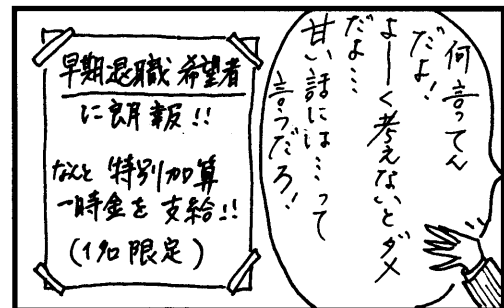 何言ってん
だよ！
よーく考えないとダメ
だよ…
甘い話には…って
言うだろ！
早期退職希望者
に朗報!!
なんと特別加算
一時金を支給!!
(1名限定)